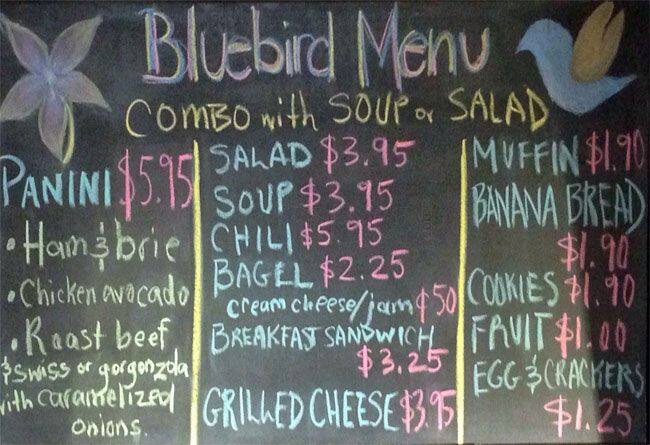 Bluebird Menu
COMBO with SOUP or SALAD
PANINI $5.95
• Ham & brie
• Chicken avocado
• Roast beef
& swiss or gorgonzola
with caramelized
onions.
SALAD $3.95
SOUP $3.95
CHILI $5.95
BAGEL $2.25
cream cheese/jam ¢50
BREAKFAST SANDWICH
$3.25
GRILLED CHEESE $3.95
MUFFIN $1.90
BANANA BREAD
$1.90
COOKIES $1.90
FRUIT $1.00
EGG & CRACKERS
$1.25